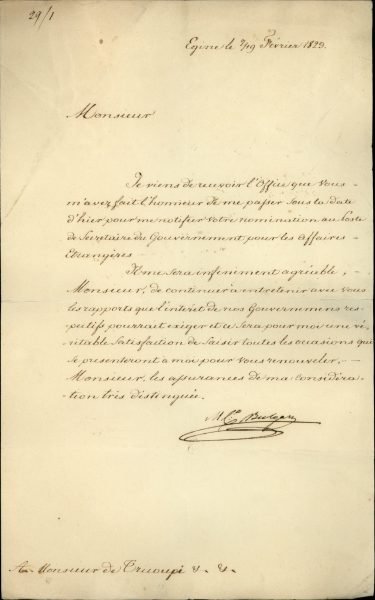 29/1
Egine le 7/19 Février 1829.
Monsieur
Je viens de recevoir l'Office que vous
m'avez fait l'honneur de me passer sous la date
d'hier pour me notifier votre nomination au Poste
de Secrétaire du Gouvernement pour les Affaires
Etrangères
Il me sera infiniment agréable,
Monsieur, de continuer à entretenir avec vous
les rapports que l'intérêt de nos Gouvernemens res-
pectifs pourrait exiger et ce sera pour moi une vé-
ritable satisfaction de saisir toutes les occasions qui
se présenteront à moi pour vous renouveler,
Monsieur, les assurances de ma considéra-
tion très distinguée.
A Monsieur de Tricoupi &. &.